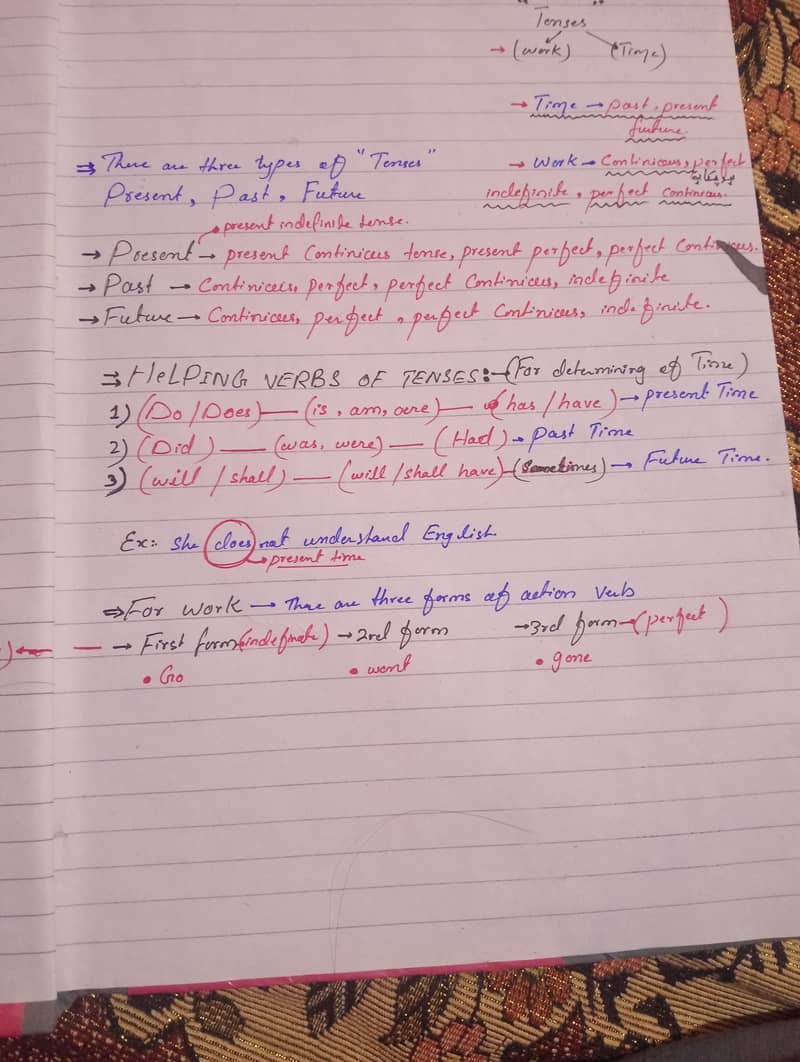 "Tenses"
→ (work) (Time)
→ Time → past, present
future.
⇒ There are three types of "Tenses"
Present, Past, Future
→ Work → Continious, perfect
indefinite, perfect continous.
• present indefinite tense.
→ Present → present Continious tense, present perfect, perfect Continous.
→ Past → Continious, perfect, perfect Continious, indefinite
→ Future → Continious, perfect, perfect Continious, indefinite.
⇒ HeLPING VERBS OF TENSES:- (For determining of Time)
1) (Do/Does) — (is, am, are) — (has/have) → present Time
2) (Did) — (was, were) — (Had) → Past Time
3) (will/shall) — (will/shall have) (Sometimes) → Future Time.
Ex:- She does not understand English.
→ present time
⇒ For work → There are three forms of action verb
→ First form (indefinate) → 2rd form → 3rd form → (perfect)
• Go • went • gone